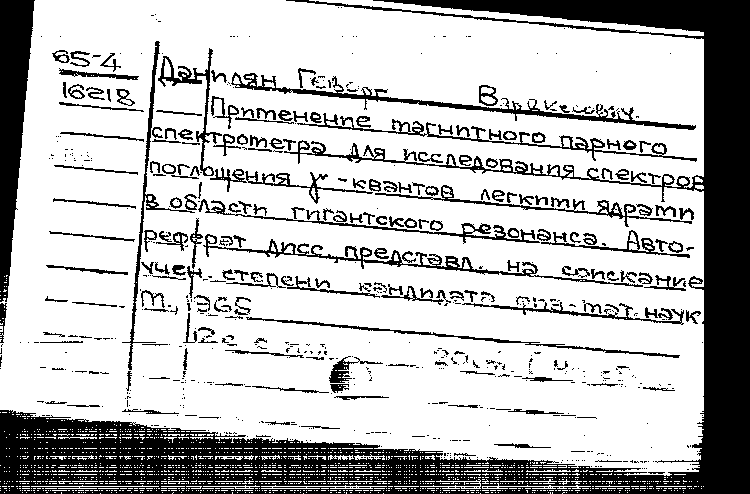 65-4
16218
Данилян, Геворг Варакесович.
Применение магнитного парного
спектрометра для исследования спектров
поглощения γ-квантов легкими ядрами
в области гигантского резонанса. Авто-
реферат дисс., представл. на соискание
учен. степени кандидата физ-мат. наук.
М., 1965
12с с
20см.